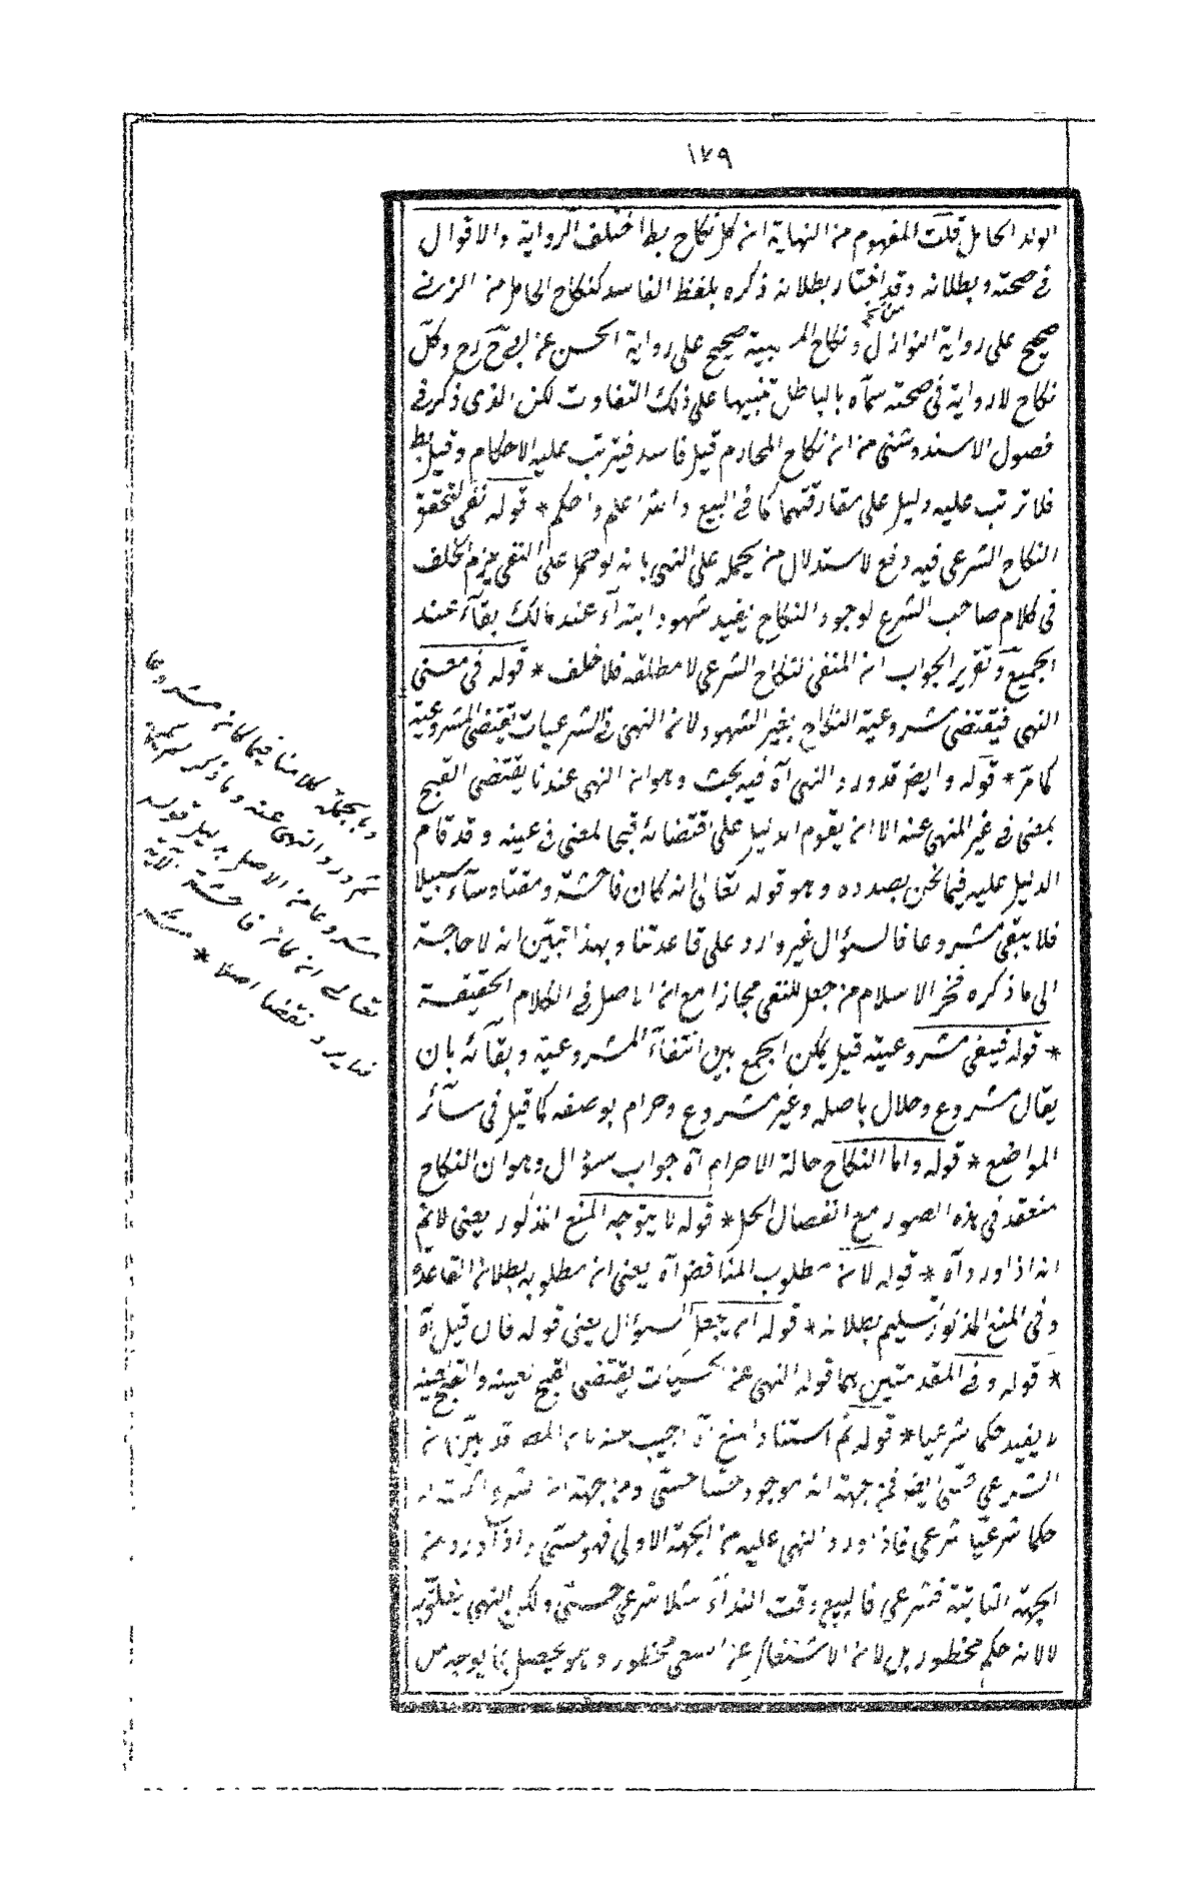 ١٧٩
الولد الحامل قلت المفهوم من النهاية ان كل نكاح بط اختلف الرواية والاقوال
فى صحته وبطلانه وقد اختار بطلانه ذكره بلفظ الفاسد كنكاح الحامل من الزنى
صحيح على رواية النوازل ونكاح المسبية صحيح على رواية الحسن عن ابى ح رح وكل
نكاح لا رواية فى صحته سماه بالباطل تنبيها على ذلك التفاوت لكن الذى ذكر فى
فصول الاستروشنى من ان نكاح المحارم قيل فاسد فيترتب عليه الاحكام وقيل بط
فلا ترتب عليه دليل على مفارقتهما كما فى البيع والله اعلم واحكم * قوله نفى لتحقق
النكاح الشرعى فيه دفع لاستدلال من يحمله على النهى بانه لو حمل على النفى يلزم الخلف
فى كلام صاحب الشرع لوجود النكاح بغير شهود ابتداء عند مالك بقاء عند
الجميع وتقرير الجواب ان المنفى النكاح الشرعى لا مطلقه فلا خلف * قوله فى معنى
النهى فيقتضى مشروعية النكاح بغير الشهود لان النهى فى الشرعيات يقتضى المشروعية
كما مر * قوله وايضا قد ورد النهى آه فيه بحث وهو ان النهى عندنا يقتضى القبح
بمعنى فى غير المنهى عنه الا ان يقوم الدليل على اقتضائه قبحا لمعنى فى عينه وقد قام
الدليل عليه فيما نحن بصدده وهو قوله تعالى انه كان فاحشة ومقتا وساء سبيلا
فلا يبقى مشروعا فالسؤال غير وارد على قاعدتنا وبهذا تبين انه لا حاجة
الى ما ذكره فخر الاسلام من جعل للنفى مجازا مع ان الاصل فى الكلام الحقيقة
* قوله فينفى مشروعيته قيل يمكن الجمع بين انتفاء المشروعية وبقائه بان
يقال مشروع وحلال باصله وغير مشروع وحرام بوصفه كما قيل فى سائر
المواضع * قوله واما النكاح حالة الاحرام آه جواب سؤال وهو ان النكاح
منعقد فى هذه الصور مع انفصال الحل * قوله لا يتوجه المنع المذكور يعنى لا نم
انه اذا ورد آه * قوله لان مطلوب المناقض آه يعنى ان مطلوبه بطلان القاعدة
وفى المنع المذكور تسليم بطلانه * قوله ان يجعل السؤال يعنى قوله فان قيل آه
* قوله وفى المقدمتين هما قوله النهى عن الحسيات يقتضى القبح لعينه والقبح لعينه
لا يفيد حكما شرعيا * قوله ثم استناد المنع آه اجيب عنه بان المص قد بين ان
الشرعى حسى ايضا فمن جهة انه موجود حسا حسى ومن جهة انه
حكما شرعيا شرعى فاذا ورد النهى عليه من الجهة الاولى فهو حسى واذا ورد من
الجهة الثانية فشرعى فالبيع وقت النداء مثلا شرعى حسى ولكن النهى يتعلق به
لا لانه حكم محظور بل لان الاشتغال عن السعى محظور وهو يحصل بما يوجد من
وبالجملة كلامنا فيما كان مشروعا
ثم ورد النهى عنه وما ذكر ليس
مشروعا من الاصل بدليل قوله
تعالى انه كان فاحشة الآية
فلا يرد نقضا اصلا * منه